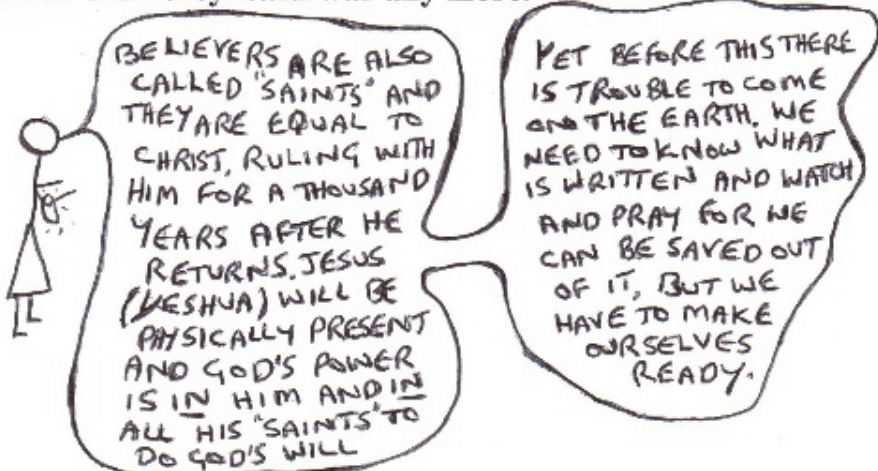 BELIEVERS ARE ALSO
CALLED "SAINTS" AND
THEY ARE EQUAL TO
CHRIST, RULING WITH
HIM FOR A THOUSAND
YEARS AFTER HE
RETURNS. JESUS
(YESHUA) WILL BE
PHYSICALLY PRESENT
AND GOD'S POWER
IS IN HIM AND IN
ALL HIS "SAINTS" TO
DO GOD'S WILL
YET BEFORE THIS THERE
IS TROUBLE TO COME
ON THE EARTH. WE
NEED TO KNOW WHAT
IS WRITTEN AND WATCH
AND PRAY FOR WE
CAN BE SAVED OUT
OF IT, BUT WE
HAVE TO MAKE
OURSELVES
READY.